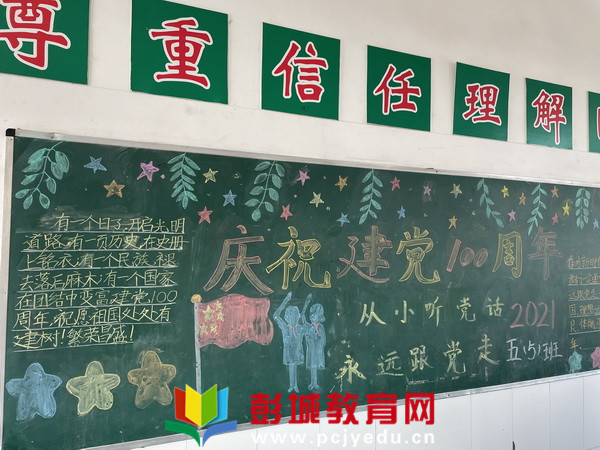 尊重信任理解
有一个日子,开启光明
道路,有一页历史,在史册
上
有一个民族,褪
去落后麻木;有一个国家
在团结中变富,建党100
周年,祝愿祖国久久有
建树!繁荣昌盛!
庆祝建党100周年
从小听党话 2021
永远跟党走 五(5)班
年
彭城教育网
www.pcjyedu.cn